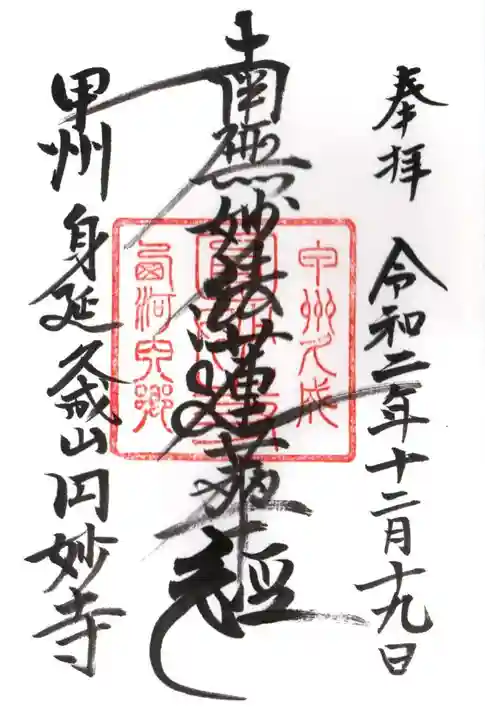 奉拝 令和二年十二月十九日
南無妙法蓮華経
甲州 身延 久成山円妙寺